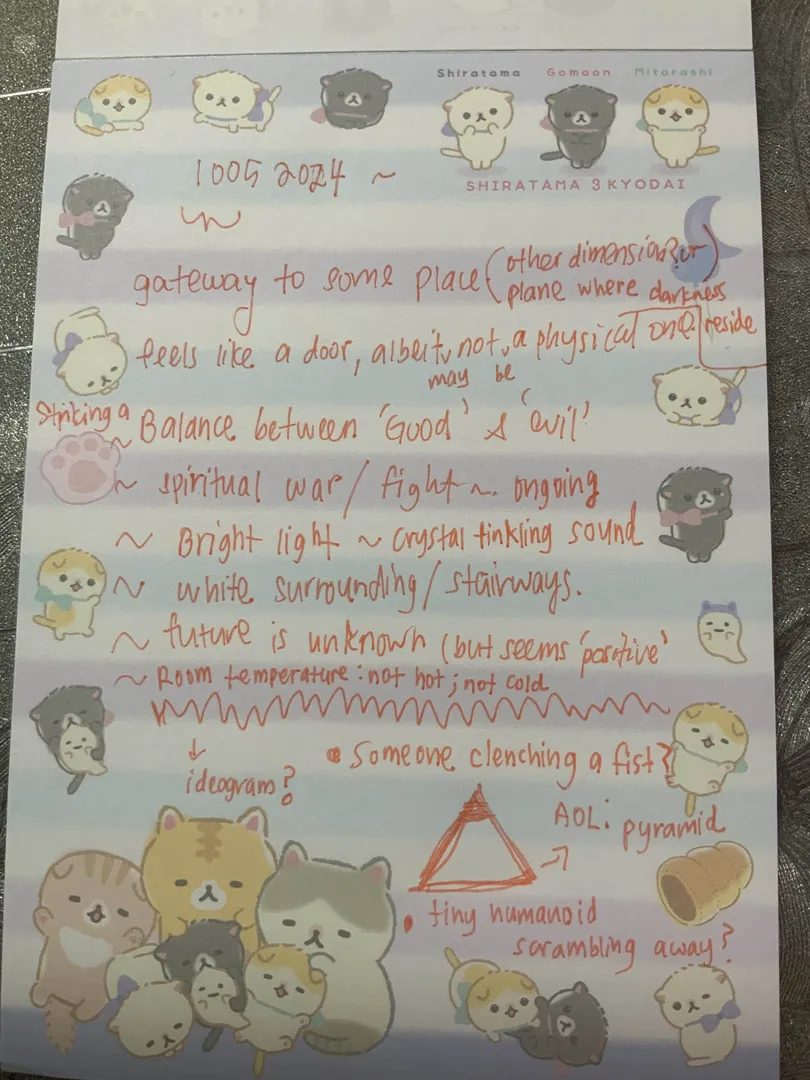 Shiratama Gomaon Mitarashi
SHIRATAMA 3 KYODAI
1005 2024 ~
gateway to some place (other dimension? or)
plane where darkness reside
feels like a door, albeit, not, a physical one.
may be
Striking a
~ Balance between 'Good' & 'evil'
~ spiritual war / fight ~ ongoing
~ Bright light ~ crystal tinkling sound
~ white surrounding / stairways.
~ future is unknown (but seems 'positive'
~ Room temperature : not hot ; not cold
↓
ideogram?
• Someone clenching a fist?
AOL: pyramid
• tiny humanoid
scrambling away?